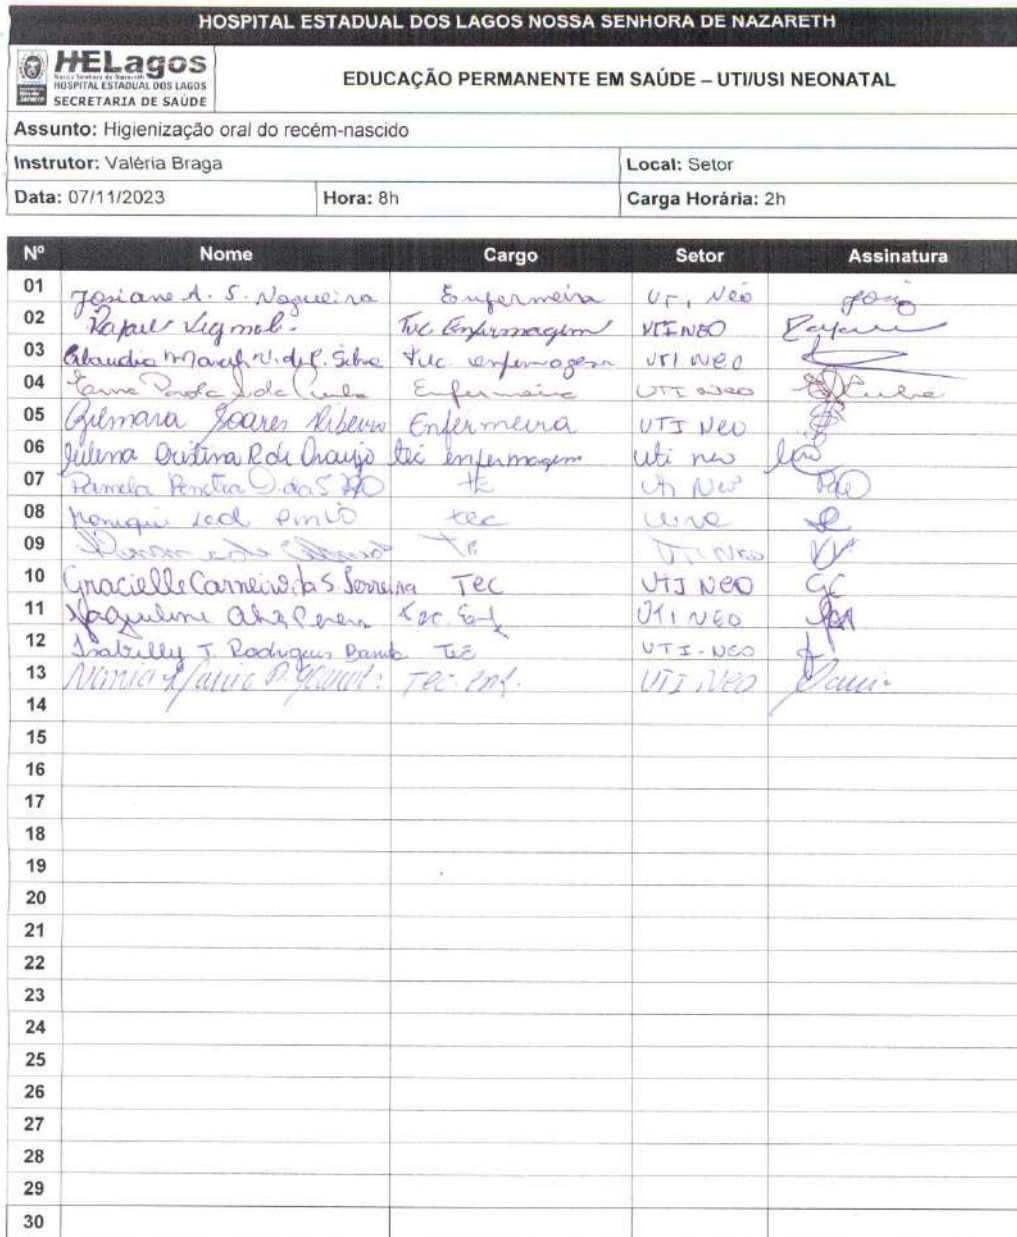 HOSPITAL ESTADUAL DOS LAGOS NOSSA SENHORA DE NAZARETH
HELagos
Nossa Senhora de Nazareth
HOSPITAL ESTADUAL DOS LAGOS
SECRETARIA DE SAÚDE
EDUCAÇÃO PERMANENTE EM SAÚDE – UTI/USI NEONATAL
Assunto: Higienização oral do recém-nascido
Instrutor: Valéria Braga Local: Setor
Data: 07/11/2023 Hora: 8h Carga Horária: 2h
Nº Nome Cargo Setor Assinatura
01 Josiane A. S. Nogueira Enfermeira UTI Neo
02 Rafael Tec Enfermagem UTI NEO
03 Claudia Silva Tec. enfermagem UTI NEO
04 Enfermeira UTI NEO
05 Gilmara Soares Ribeiro Enfermeira UTI Neo
06 Cristina R. de Araujo tec enfermagem uti neo
07 Pamela Uti Neo
08 tec
09 UTI NEO
10 Gracielle Carneiro da S. Ferreira Tec UTI NEO GC
11 Jaqueline Tec. Enf UTI NEO
12 Isabelly T. Rodrigues Tec UTI-NEO
13 Tec. Enf. UTI NEO
14
15
16
17
18
19
20
21
22
23
24
25
26
27
28
29
30